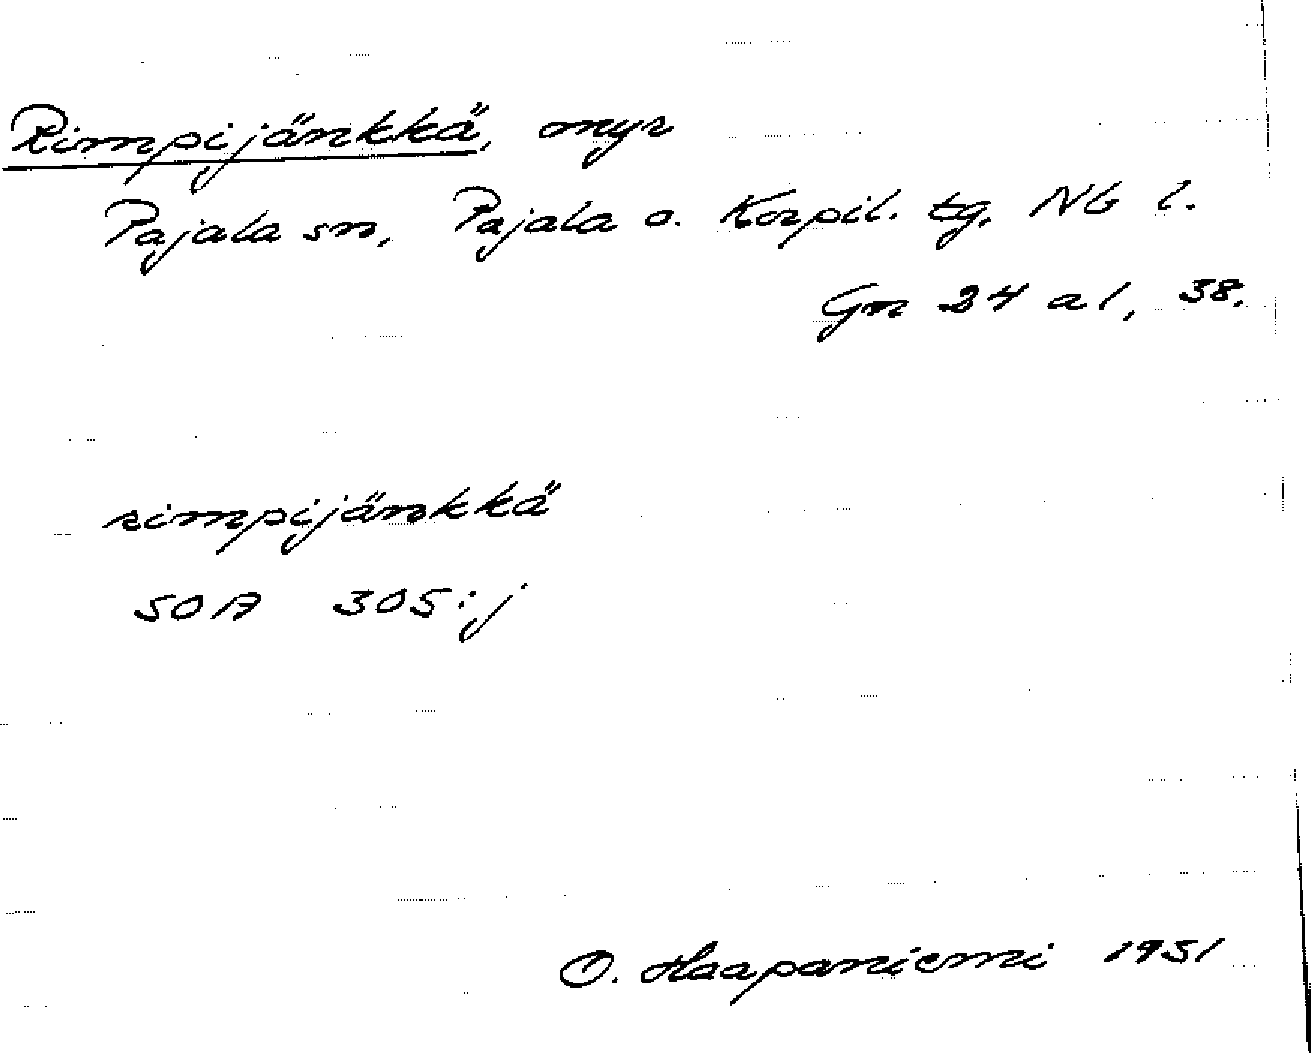 Rimpijänkkä, myr
Pajala sn, Pajala o. Korpil. tg, Nb l.
Gn 24 a l, 38.
rimpijänkkä
SOA 305:j
O. Haapaniemi 1951